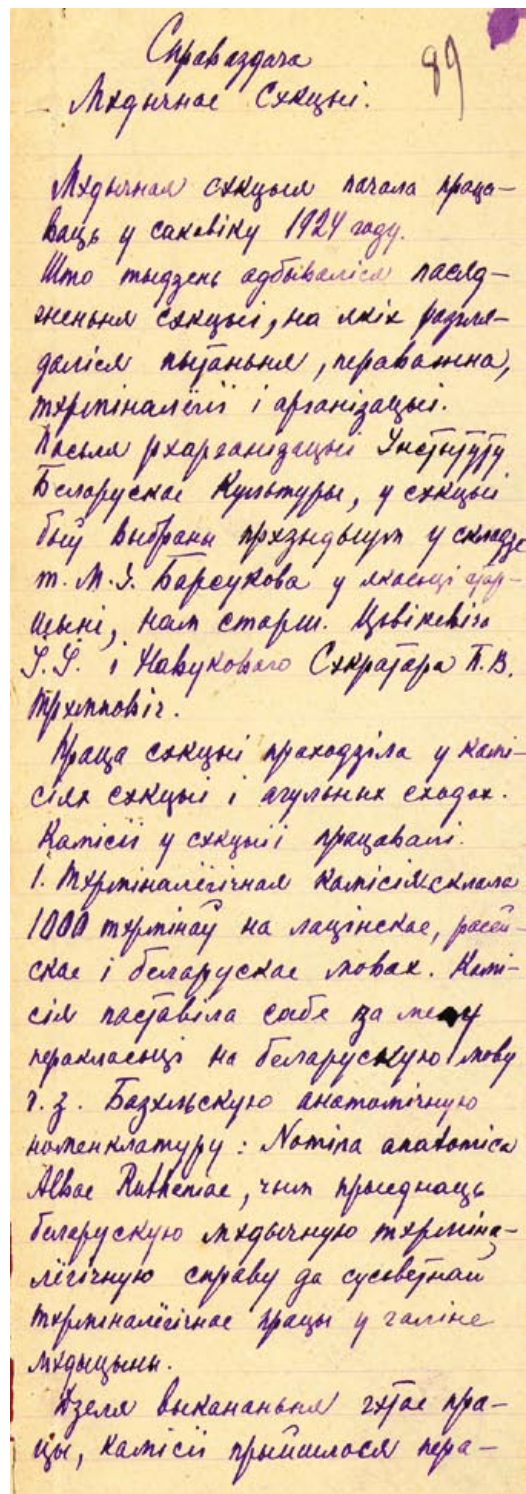 Справаздача
89
Мэдычнае Сэкцыі.
Мэдычная сэкцыя пачала праца-
ваць у сакавіку 1924 году.
Што тыдзень адбываліся пасяд-
жэньня сэкцыі, на якіх разгля-
даліся пытаньня, пераважна,
тэрміналёгіі і арганізацыі.
Пасьля рэарганізацыі Інстытуту
Беларускае Культуры, у сэкцыі
быў выбраны прэзыдыум у складзе
т. М.І. Барсукова у якасьці стар-
шыні, нам старш. Цьвікевіча
І.І. і Навуковаго Сэкратара П.В.
Трэмповіч.
Праца сэкцыі праходзіла у камі-
сіях сэкцыі і агульных сходах.
Камісіі у сэкцыі працавалі.
1. Тэрміналёгічная камісія склала
1000 тэрмінаў на лацінскае, расей-
скае і беларускае мовах. Камі-
сія паставіла сабе за мэту
перакласьці на беларускую мову
г. з. Базэльскую анатомічную
номенклатуру: Nomina anatomica
Albae Rutheniae, чым прыеднаць
беларускую мэдычную тэрміна-
лёгічную справу да сусьветнай
тэрміналёгічнае працы у галіне
мэдыцыны.
Дзеля выкананьня гэтае пра-
цы, камісіі прыйшлося пера-